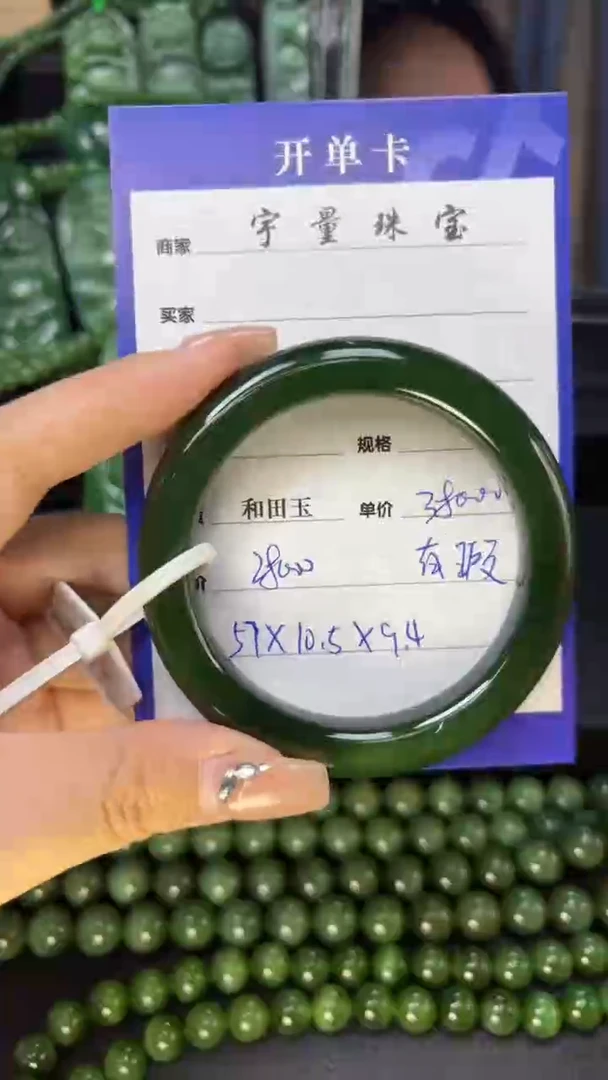 开单卡
商家 宇量珠宝
买家
规格
和田玉 单价
价 有瑕
57X10.5X9.4